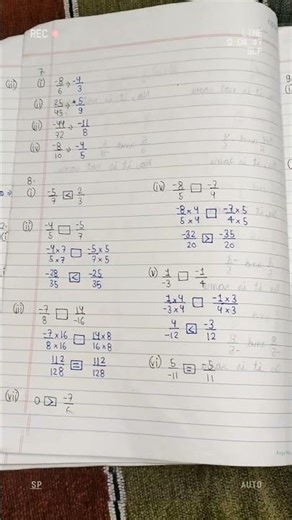 REC
7.
(i) -8/6 → -4/3
(ii) 25/45 → 5/9
(iii) -44/72 → -11/8
(iv) -8/10 → -4/5
8.
(i) -5/7 < 2/3
(ii) -4/5 □ -5/7
-4×7/5×7 □ -5×5/7×5
-28/35 < -25/35
(iii) -7/8 □ 14/-16
-7×16/8×16 □ 14×8/16×8
112/128 = 112/128
(vii) 0 > -7/6
(iv) -8/5 □ -7/4
-8×4/5×4 □ -7×5/4×5
-32/20 > -35/20
(v) 1/-3 □ -1/4
1×4/-3×4 □ -1×3/4×3
4/-12 < -3/12
(vi) 5/-11 = -5/11
SP
AUTO